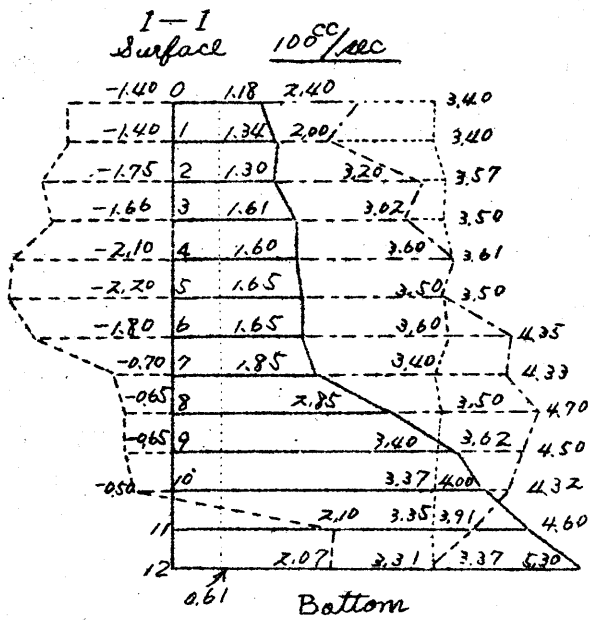 1-1
Surface 100cc/sec
-1.40 0 1.18 2.40 3.40
-1.40 1 1.34 2.00 3.40
-1.75 2 1.30 3.20 3.57
-1.66 3 1.61 3.02 3.50
-2.10 4 1.60 3.60 3.61
-2.20 5 1.65 3.50 3.50
-1.80 6 1.65 3.60 4.35
-0.70 7 1.85 3.40 4.33
-0.65 8 2.85 3.50 4.70
-0.65 9 3.40 3.62 4.50
-0.50 10 3.37 4.00 4.32
11 2.10 3.35 3.91 4.60
12 2.07 3.31 3.37 5.30
0.61
Bottom